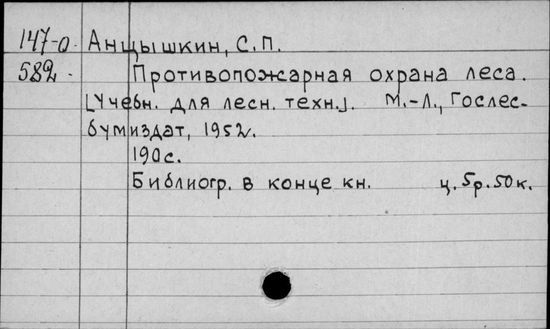 147-0. Анцышкин, С.П.
582. Противопожарная охрана леса.
[Учебн. для лесн. техн.]. М.-Л., Гослес-
бумиздат, 1952.
190 с.
Библиогр. в конце кн. ц. 5р.50к.